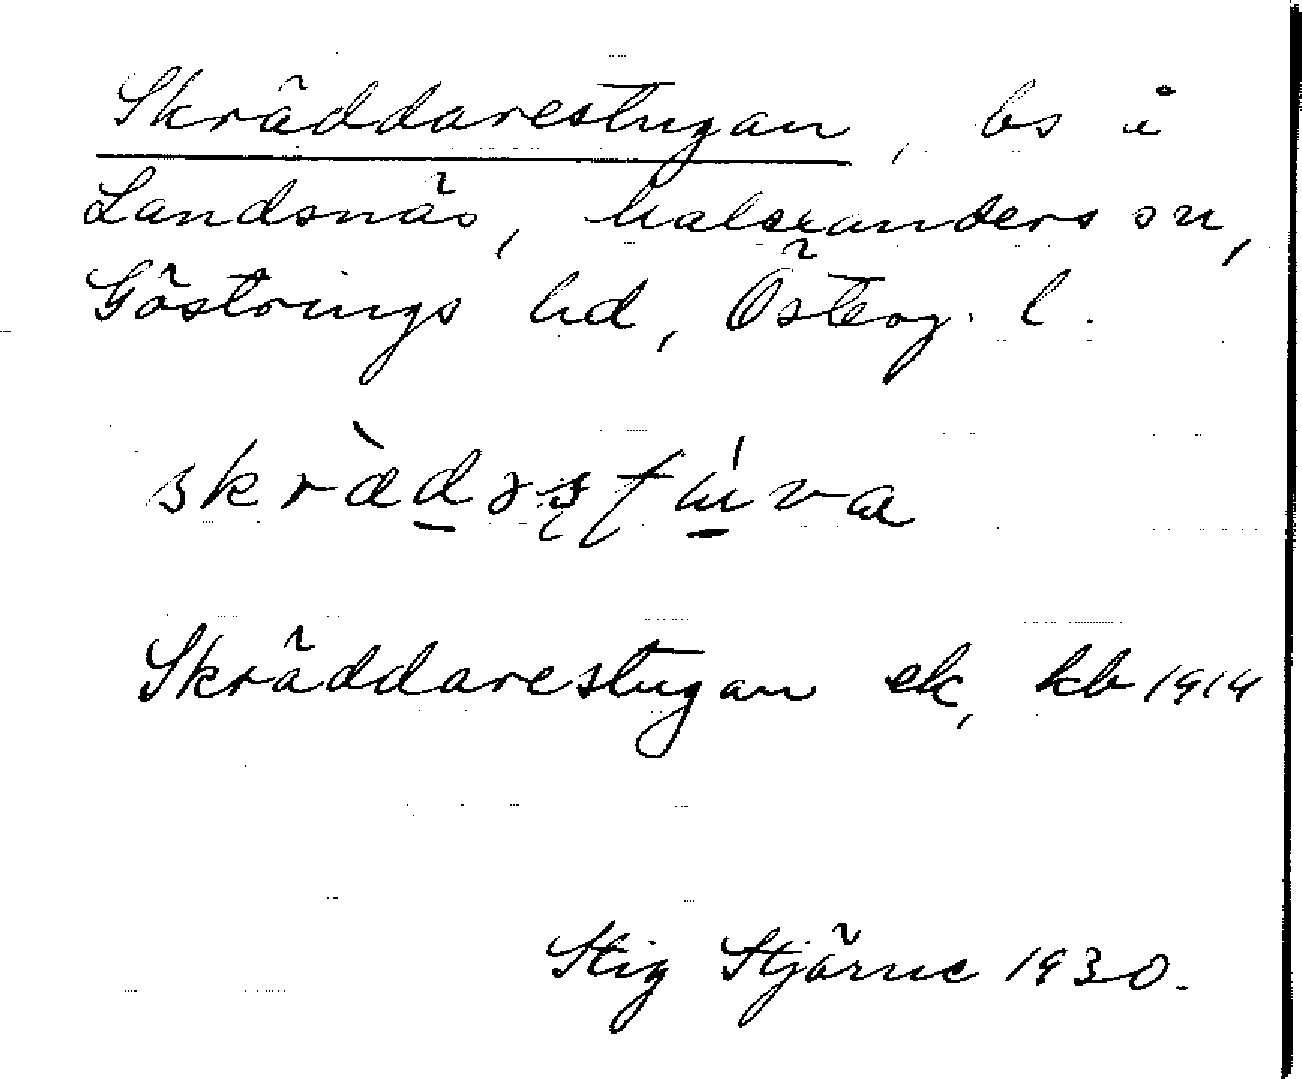 Skräddarestugan, bs i
Landsnäs, Malexanders sn,
Göstrings hd, Österg. l.
skræ̀dəstúva
Skräddarestugan ek, kb 1914
Stig Stjärne 1930.